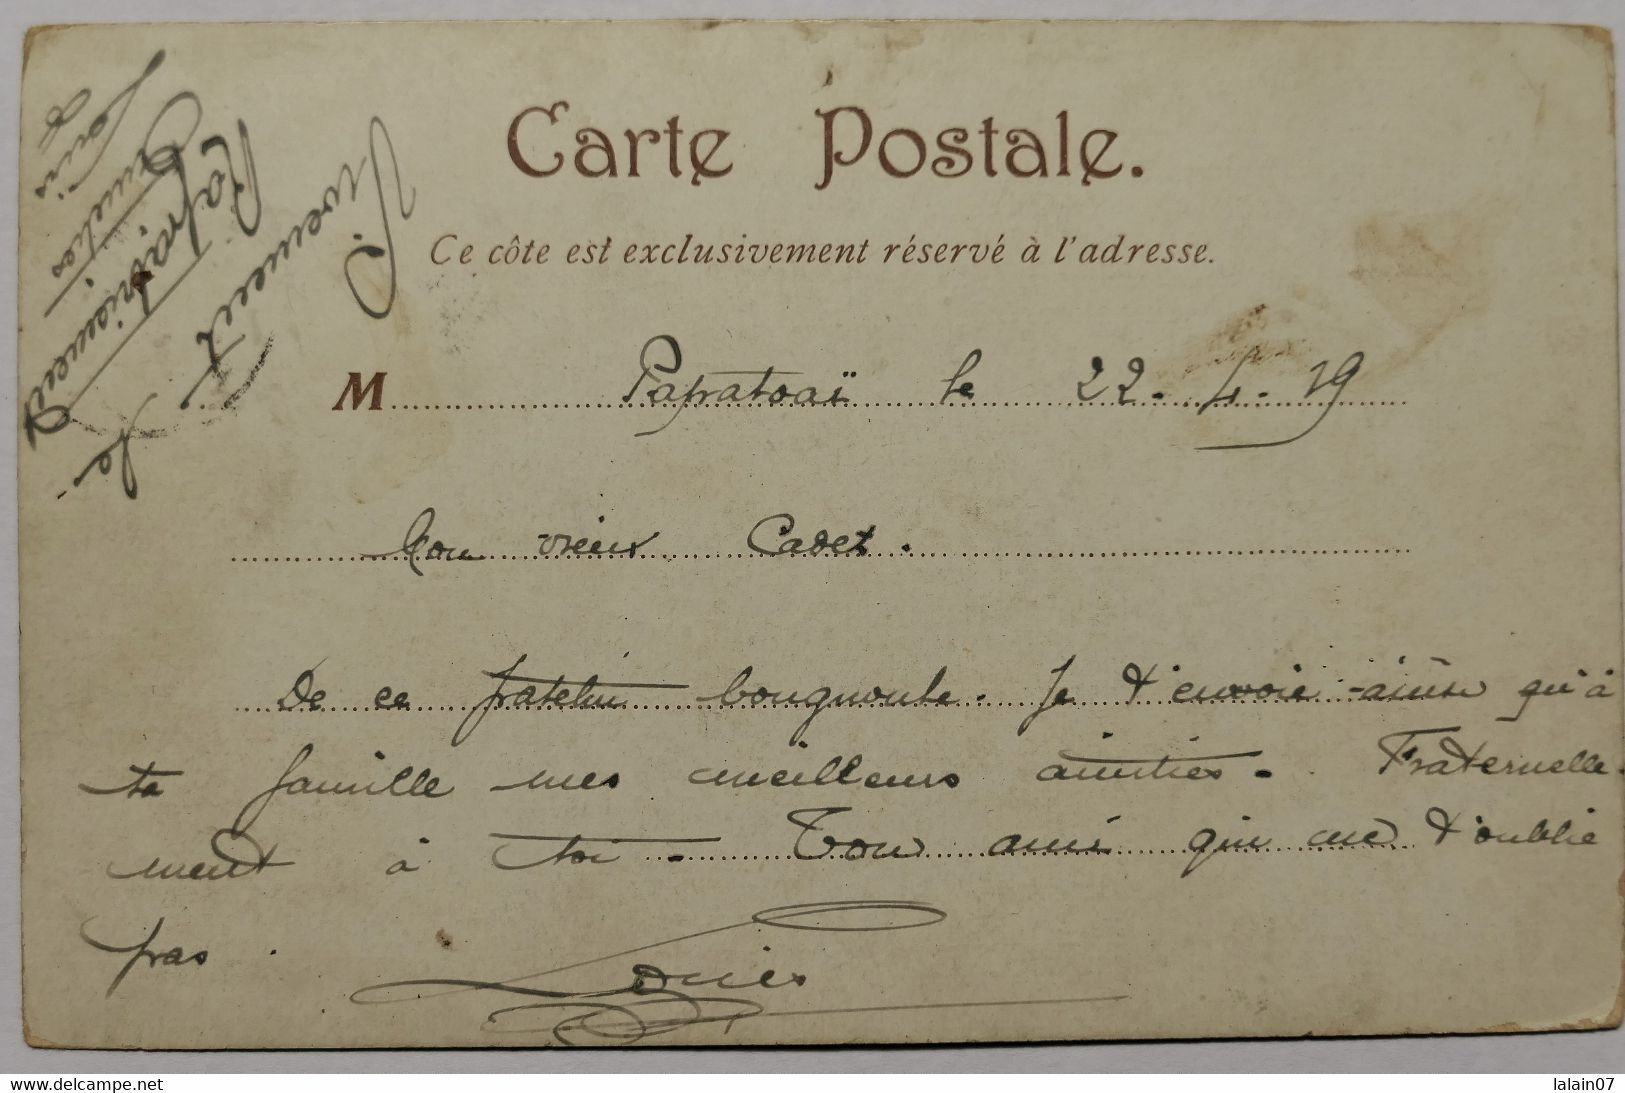 Carte Postale.
Ce côte est exclusivement réservé à l'adresse.
M Papatoaï le 22-4-19
Mon vieux Cadet.
De ce patelin bougnoule. Je t'envoie ainsi qu'à
ta famille mes meilleurs amitiés. Fraternelle-
ment à toi. Ton ami qui ne t'oublie
pas.
Louis
Vivement le
Rapatriement
Amitiés
de Louis
www.delcampe.net
lalain07